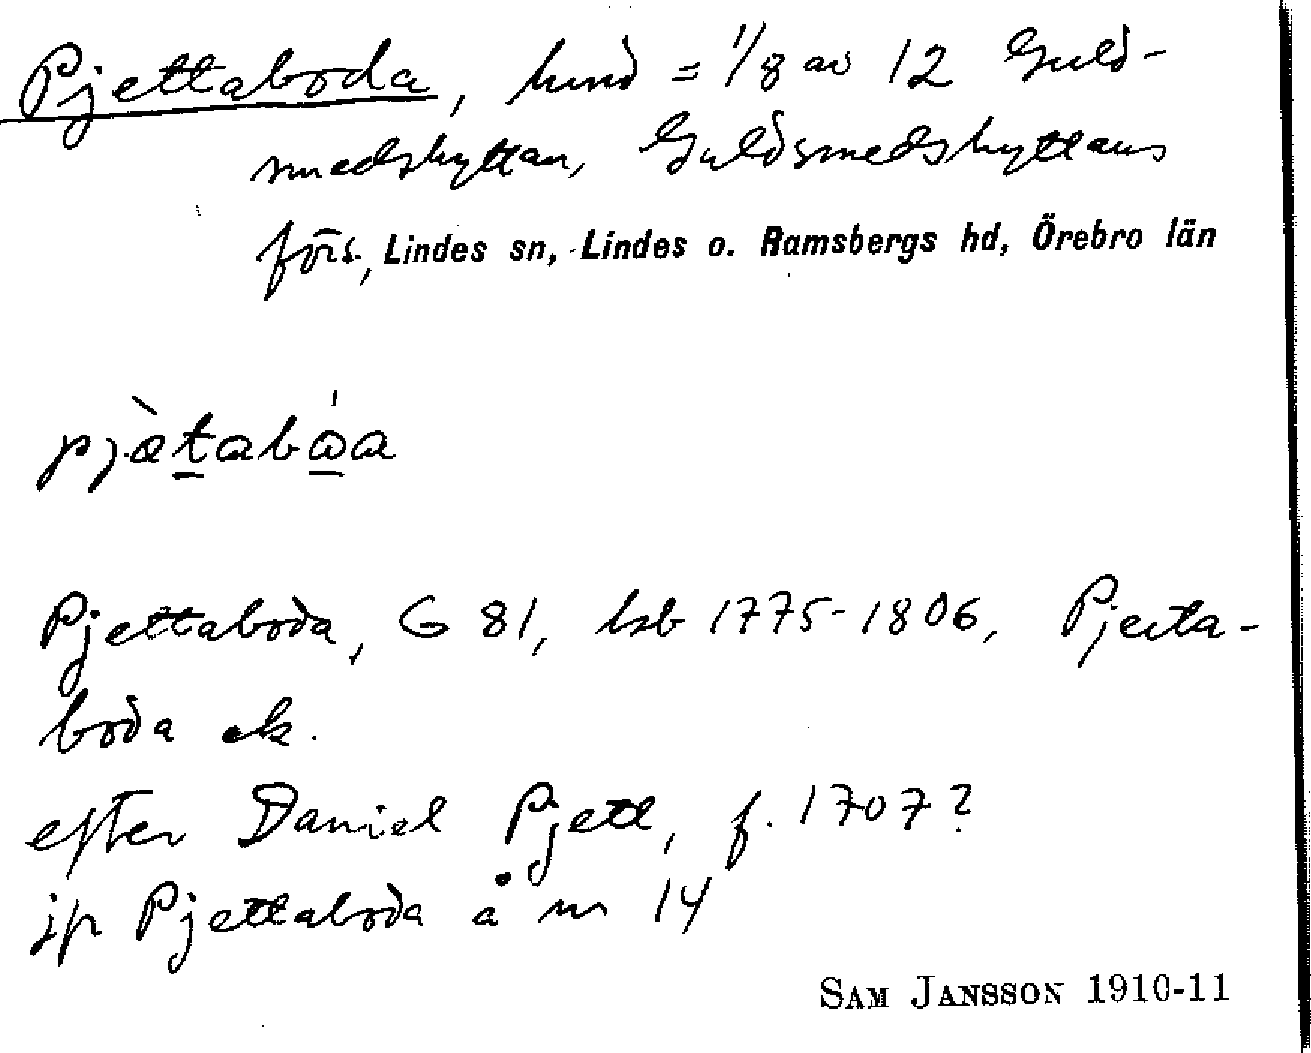 Pjettaboda, hmd = 1/8 av 12 Guld-
smedshyttan, Guldsmedshyttans
förs., Lindes sn, Lindes o. Ramsbergs hd, Örebro län
pjètabǻa
Pjettaboda, G 81, hsb 1775-1806, Pjetta-
boda ek.
efter Daniel Pjett, f. 1707?
jfr Pjettaboda å nr 14
SAM JANSSON 1910-11